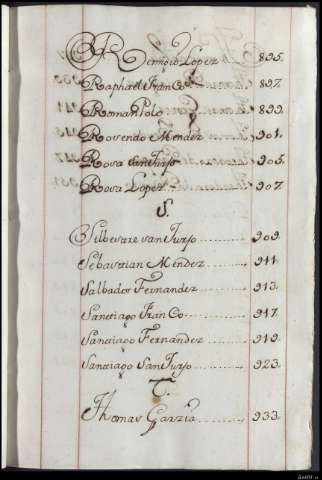 Remigio Lopez 895.
Raphael Franco 897.
Roman Polo 899.
Rosendo Mendez 901.
Rosa SanJurjo 905.
Rosa Lopez 907.
S.
Silbestre SanJurjo 909.
Sebastian Mendez 911.
Salbador Fernandez 913.
Sanctiago Franco 917.
Sanctiago Fernandez 919.
Sanctiago SanJurjo 923.
T.
Thomas Garzia 933.